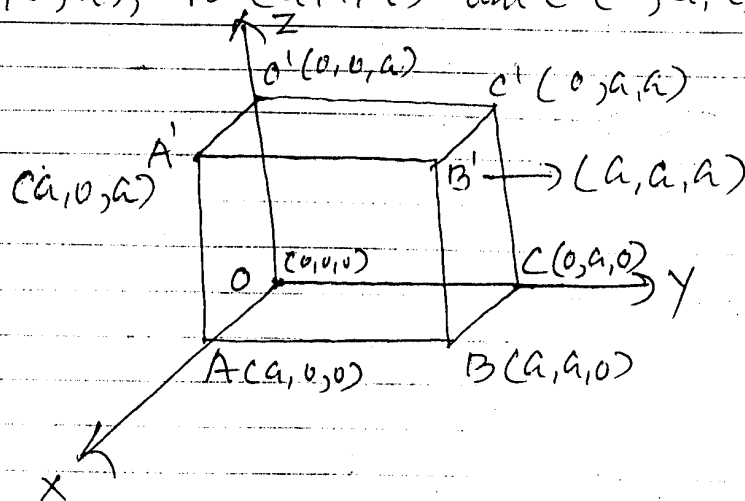 Z
O'(0,0,a)
C'(0,a,a)
A'
(a,0,a)
B' → (a,a,a)
O (0,0,0)
C(0,a,0)
Y
A(a,0,0)
B(a,a,0)
X